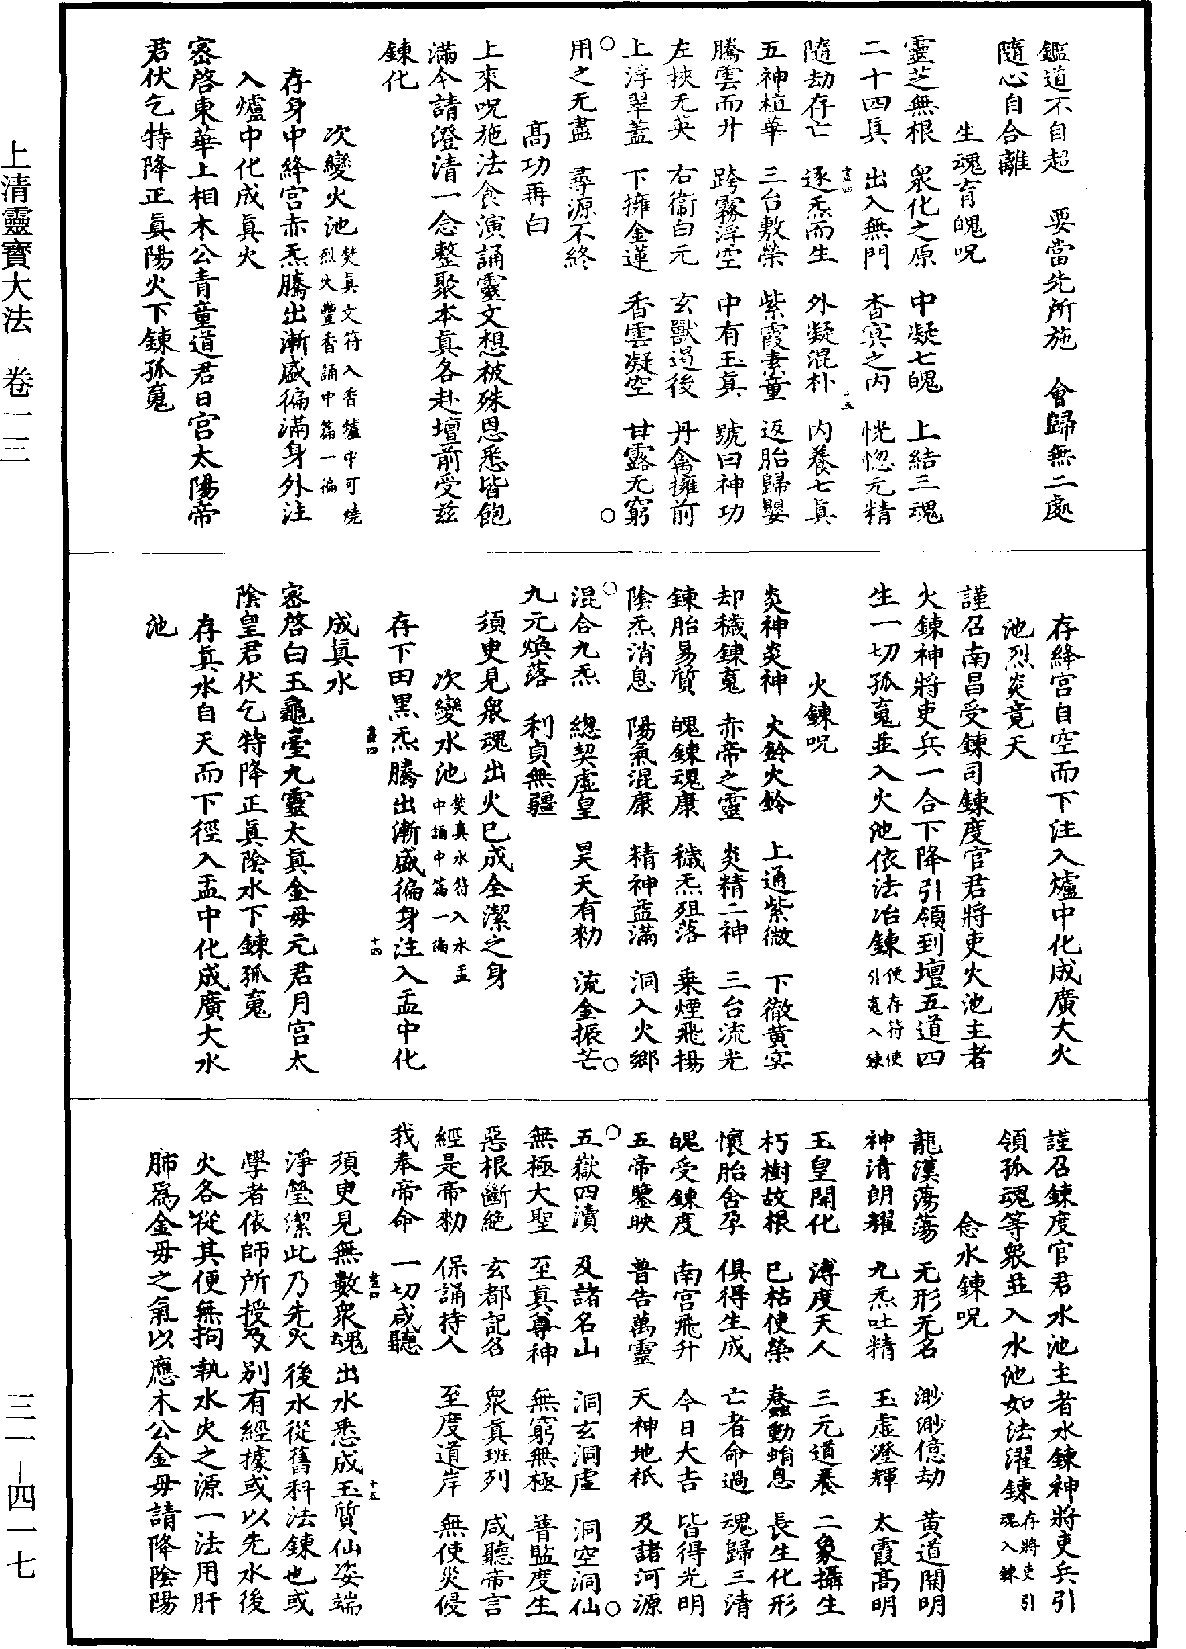 鑑道不自超　要當先所施　會歸無二處
隨心自合離
生魂育魄呪
靈芝無根　衆化之原　中凝七魄　上結三魂
二十四真　出入無門　杳冥之内　恍惚元精
隨劫存亡　逐炁而生　外凝混朴　内養七真
五神植華　三台敷榮　紫霞素童　返胎歸嬰
騰雲而升　跨霧浮空　中有玉真　號曰神功
左挾无英　右衞白元　玄獸迢後　丹禽擁前
上浮翠蓋　下擁金蓮　香雲凝空　甘露无窮
用之无盡　尋源不終
高功再白
上來呪施法食演誦靈文想被殊恩悉皆飽
滿今請澄清一念整聚本真各赴壇前受兹
鍊化
次變火池焚真文符入香爐中可燒烈火豐香誦中篇一徧
存身中絳宮赤炁騰出漸盛徧滿身外注
入爐中化成真火
密啓東華上相木公青童道君日宮太陽帝
君伏乞特降正真陽火下鍊孤䰟
存絳宮自空而下注入爐中化成廣大火
池烈炎竟天
謹召南昌受鍊司鍊度官君將吏火池主者
火鍊神將吏兵一合下降引領到壇五道四
生一切孤䰟並入火池依法冶鍊使存符使引䰟入鍊
火鍊呪
炎神炎神　火鈴火鈴　上通紫微　下徹黄寧
却穢鍊䰟　赤帝之靈　炎精二神　三台流光
鍊胎易質　魄鍊魂康　穢炁殂落　乗煙飛揚
陰炁消息　陽氣混康　精神盖滿　洞入火鄉
混合九炁　總契虛皇　昊天有勑　流金振芒
九元煥落　利貞無疆
須臾見衆魂出火已成全潔之身
次變水池焚真水符入水盂中誦中篇一徧
存下田黑炁騰出漸盛徧身注入盂中化
成真水
密啓白玉龜臺九靈太真金母元君月宮太
陰皇君伏乞特降正真陰水下鍊孤䰟
存真水自天而下徑入盂中化成廣大水
池
謹召鍊度官君水池主者水鍊神將吏兵引
領孤魂等衆並入水池如法濯鍊存將吏引魂入鍊
念水鍊呪
龍漢蕩蕩　无形无名　渺渺億劫　黄道開明
神清朗耀　九炁吐精　玉虛澄輝　太霞高明
玉皇開化　溥度天人　三元道養　二象攝生
朽樹故根　已枯使榮　蠢動蛸息　長生化形
懷胎含孕　俱得生成　亡者命過　魂歸三清
魄受鍊度　南宮飛升　今日大吉　皆得光明
五帝鑒映　普告萬靈　天神地祇　及諸河源
五嶽四瀆　及諸名山　洞玄洞虛　洞空洞仙
無極大聖　至真尊神　無窮無極　普監度生
惡根斷絶　玄都記名　衆真班列　咸聽帝言
經是帝勑　保誦持人　至度道岸　無使災侵
我奉帝命　一切咸聽
須臾見無數衆魂出水悉成玉質仙姿端
淨瑩潔此乃先火後水從舊科法鍊也或
學者依師所授及別有經據或以先水後
火各從其便無拘執水火之源一法用肝
肺爲金母之氣以應木公金母請降陰陽
上清靈寳大法　卷一三
三一－四一七